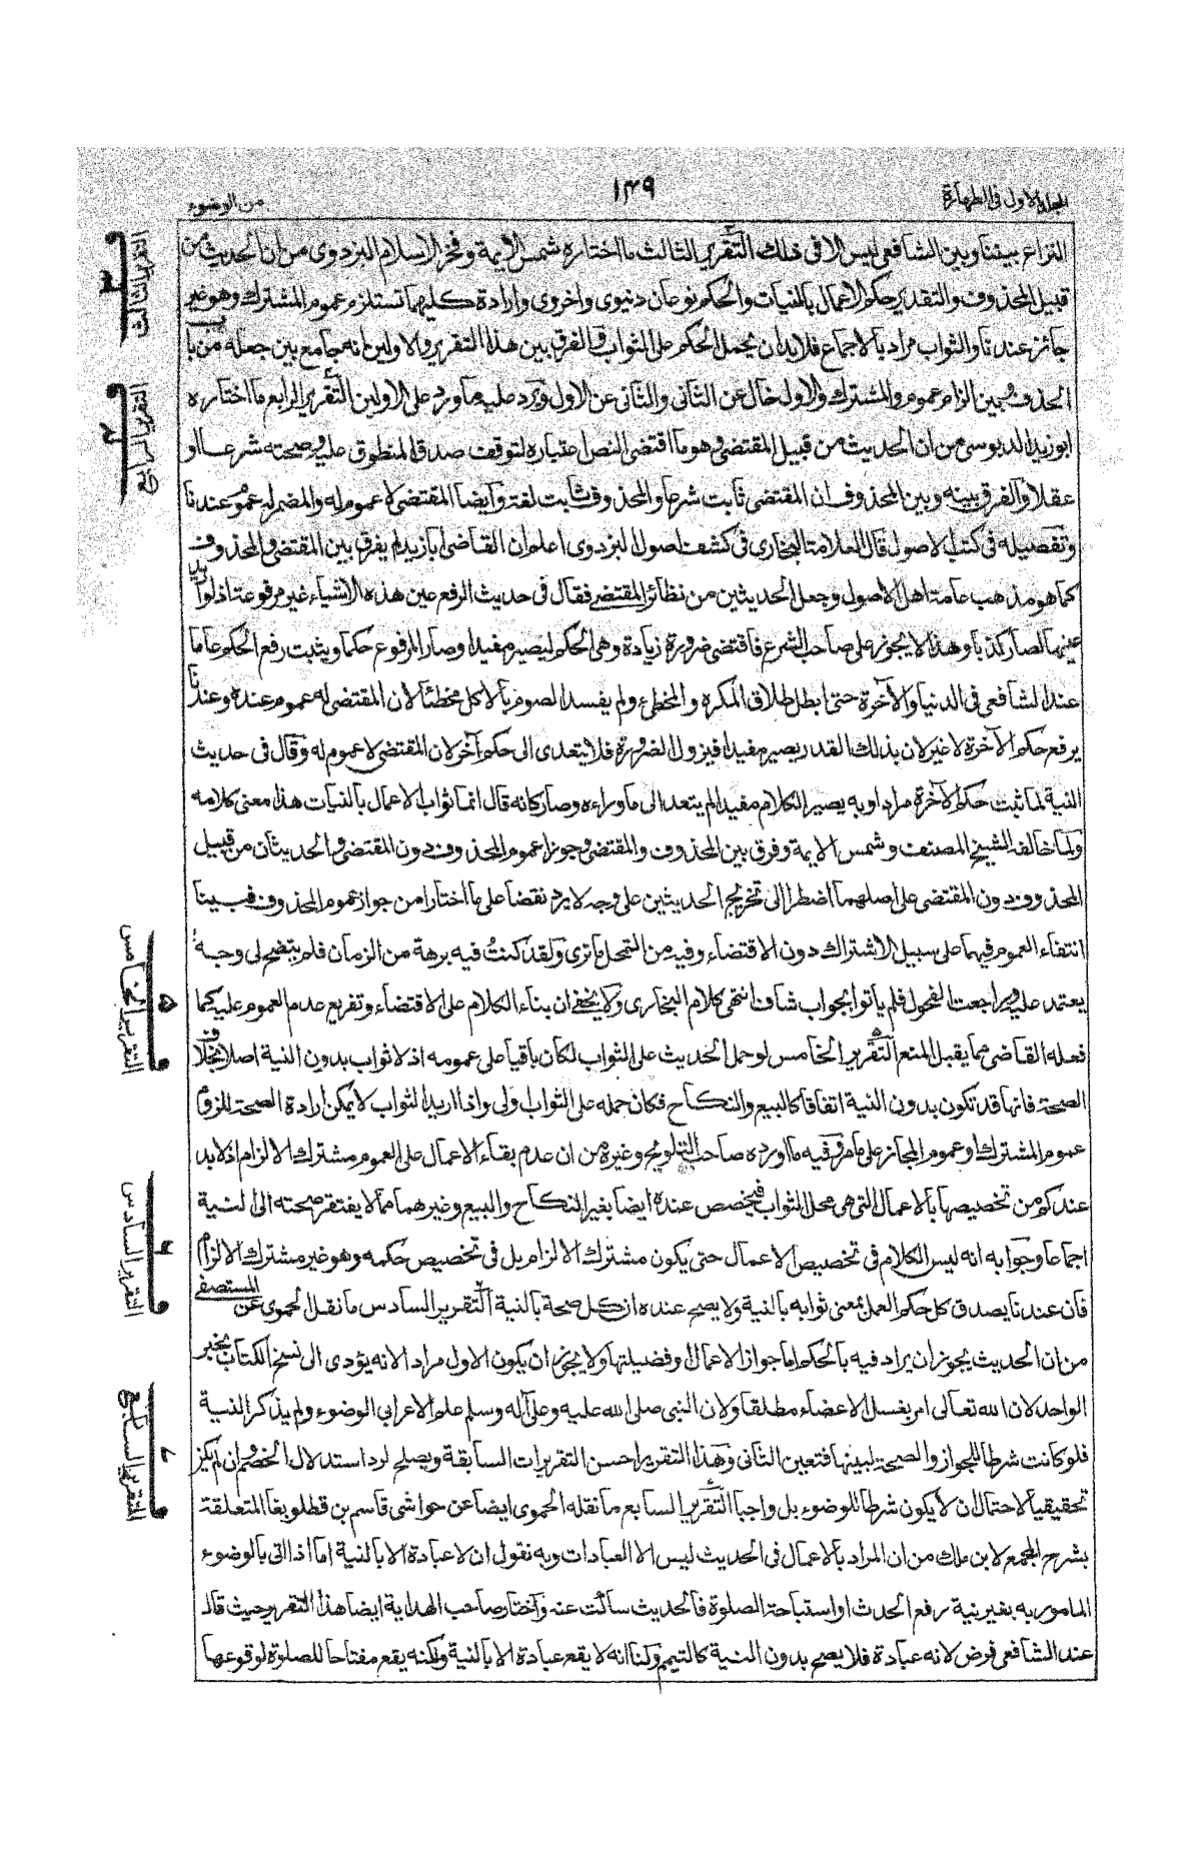 المجلد الاول فى الطهارة
١٣٩
من الوضوء
النزاع بيننا وبين الشافعى ليس الا فى ذلك التقرير الثالث ما اختاره شمس الايمة وفخر الاسلام البزدوى من ان الحديث من
قبيل المحذوف والتقدير حكم الاعمال بالنيات والحكم نوعان دنيوى واخروى وارادة كليهما تستلزم عموم المشترك وهو غير
جائز عندنا والثواب مراد بالاجماع فلا بد ان يحمل الحكم على الثواب والفرق بين هذا التقرير والاولين انه جامع بين جعله من باب
الحذف وبين الزام عموم المشترك والاول خال عن الثانى والثانى عن الاول ويرد عليه ما ورد على الاولين التقرير الرابع ما اختاره
ابو زيد الدبوسى من ان الحديث من قبيل المقتضى وهو ما اقتضى النص اعتباره لتوقف صدق المنطوق عليه وصحته شرعا او
عقلا والفرق بينه وبين المحذوف ان المقتضى ثابت شرعا والمحذوف ثابت لغة وايضا المقتضى لا عموم له والمضمر له عموم عندنا
وتفصيله فى كتب الاصول قال العلامة البخارى فى كشف اصول البزدوى اعلم ان القاضى ابا زيد لم يفرق بين المقتضى والمحذوف
كما هو مذهب عامة اهل الاصول وجعل الحديثين من نظائر المقتضى فقال فى حديث الرفع عين هذه الاشياء غير مرفوعة اذ لو اريد
عينها لصار كذبا وهذا لا يجوز على صاحب الشرع فاقتضى ضرورة زيادة وهى الحكم ليصير مفيدا وصار المرفوع حكما ويثبت رفع الحكم عاما
عند الشافعى فى الدنيا والآخرة حتى ابطل طلاق المكره والمخطئ ولم يفسد الصوم بالاكل مخطئا لان المقتضى له عموم عنده وعندنا
يرفع حكم الآخرة لا غير لان بذلك القدر يصير مفيدا فيزول الضرورة فلا يتعدى الى حكم آخر لان المقتضى لا عموم له وقال فى حديث
النية لما ثبت حكم الآخرة مرادا وبه يصير الكلام مفيدا لم يتعد الى ما وراءه وصار كانه قال انما ثواب الاعمال بالنيات هذا معنى كلامه
ولما خالفه الشيخ المصنف وشمس الايمة وفرق بين المحذوف والمقتضى وجوزا عموم المحذوف دون المقتضى والحديثان من قبيل
المحذوف دون المقتضى على اصلهما اضطرا الى تخريج الحديثين على وجه لا يرد نقضا على ما اختارا من جواز عموم المحذوف فبينا
انتفاء العموم فيهما على سبيل الاشتراك دون الاقتضاء وفيه من التمحل ما ترى ولقد كنت فيه برهة من الزمان فلم يتضح لى وجه
يعتمد عليه وراجعت الفحول فلم ياتوا بجواب شاف انتهى كلام البخارى ولا يخفى ان بناء الكلام على الاقتضاء وتفريع عدم العموم عليه كما
فعله القاضى مما يقبل المنع التقرير الخامس لو حمل الحديث على الثواب لكان باقيا على عمومه اذ لا ثواب بدون النية اصلا بخلاف
الصحة فانها قد تكون بدون النية اتفاقا كالبيع والنكاح فكان حمله على الثواب اولى واذا اريد الثواب لا يمكن ارادة الصحة للزوم
عموم المشترك او عموم المجاز على ما مر وفيه ما اورده صاحب التلويح وغيره من ان عدم بقاء الاعمال على العموم مشترك الالزام اذ لا بد
عندكم من تخصيصها بالاعمال التى هى محل الثواب فيخصص عنده ايضا بغير النكاح والبيع وغيرهما مما لا يفتقر صحته الى النية
اجماعا وجوابه انه ليس الكلام فى تخصيص الاعمال حتى يكون مشترك الالزام بل فى تخصيص حكمه وهو غير مشترك الالزام
فان عندنا يصدق كل حكم العمل بمعنى ثوابه بالنية ولا يصح عنده ان كل صحة بالنية التقرير السادس ما نقل الحموى عن المستصفى
من ان الحديث يجوز ان يراد فيه بالحكم اما جواز الاعمال او فضيلتها ولا يجوز ان يكون الاول مرادا لانه يؤدى الى نسخ الكتاب بخبر
الواحد لان الله تعالى امر بغسل الاعضاء مطلقا ولان النبى صلى الله عليه وعلى آله وسلم علم الاعرابى الوضوء ولم يذكر النية
فلو كانت شرطا للجواز والصحة لبينها فتعين الثانى وهذا التقرير احسن التقريرات السابقة ويصلح لرد استدلال الخصم وان لم يكن
تحقيقيا لاحتمال ان لا يكون شرطا للوضوء بل واجبا التقرير السابع ما نقله الحموى ايضا عن حواشى قاسم بن قطلوبغا المتعلقة
بشرح المجمع لابن ملك من ان المراد بالاعمال فى الحديث ليس الا العبادات وبه نقول ان لا عبادة الا بالنية اما اذا اتى بالوضوء
المامور به بغير نية رفع الحدث او استباحة الصلوة فالحديث ساكت عنه واختار صاحب الهداية ايضا هذا التقرير حيث قال
عند الشافعى فرض لانه عبادة فلا يصح بدون النية كالتيمم ولنا انه لا يقع عبادة الا بالنية ولكنه يقع مفتاحا للصلوة لوقوعها
التقرير الثالث
٣
التقرير الرابع
٤
التقرير الخامس
٥
التقرير السادس
٦
التقرير السابع
٧